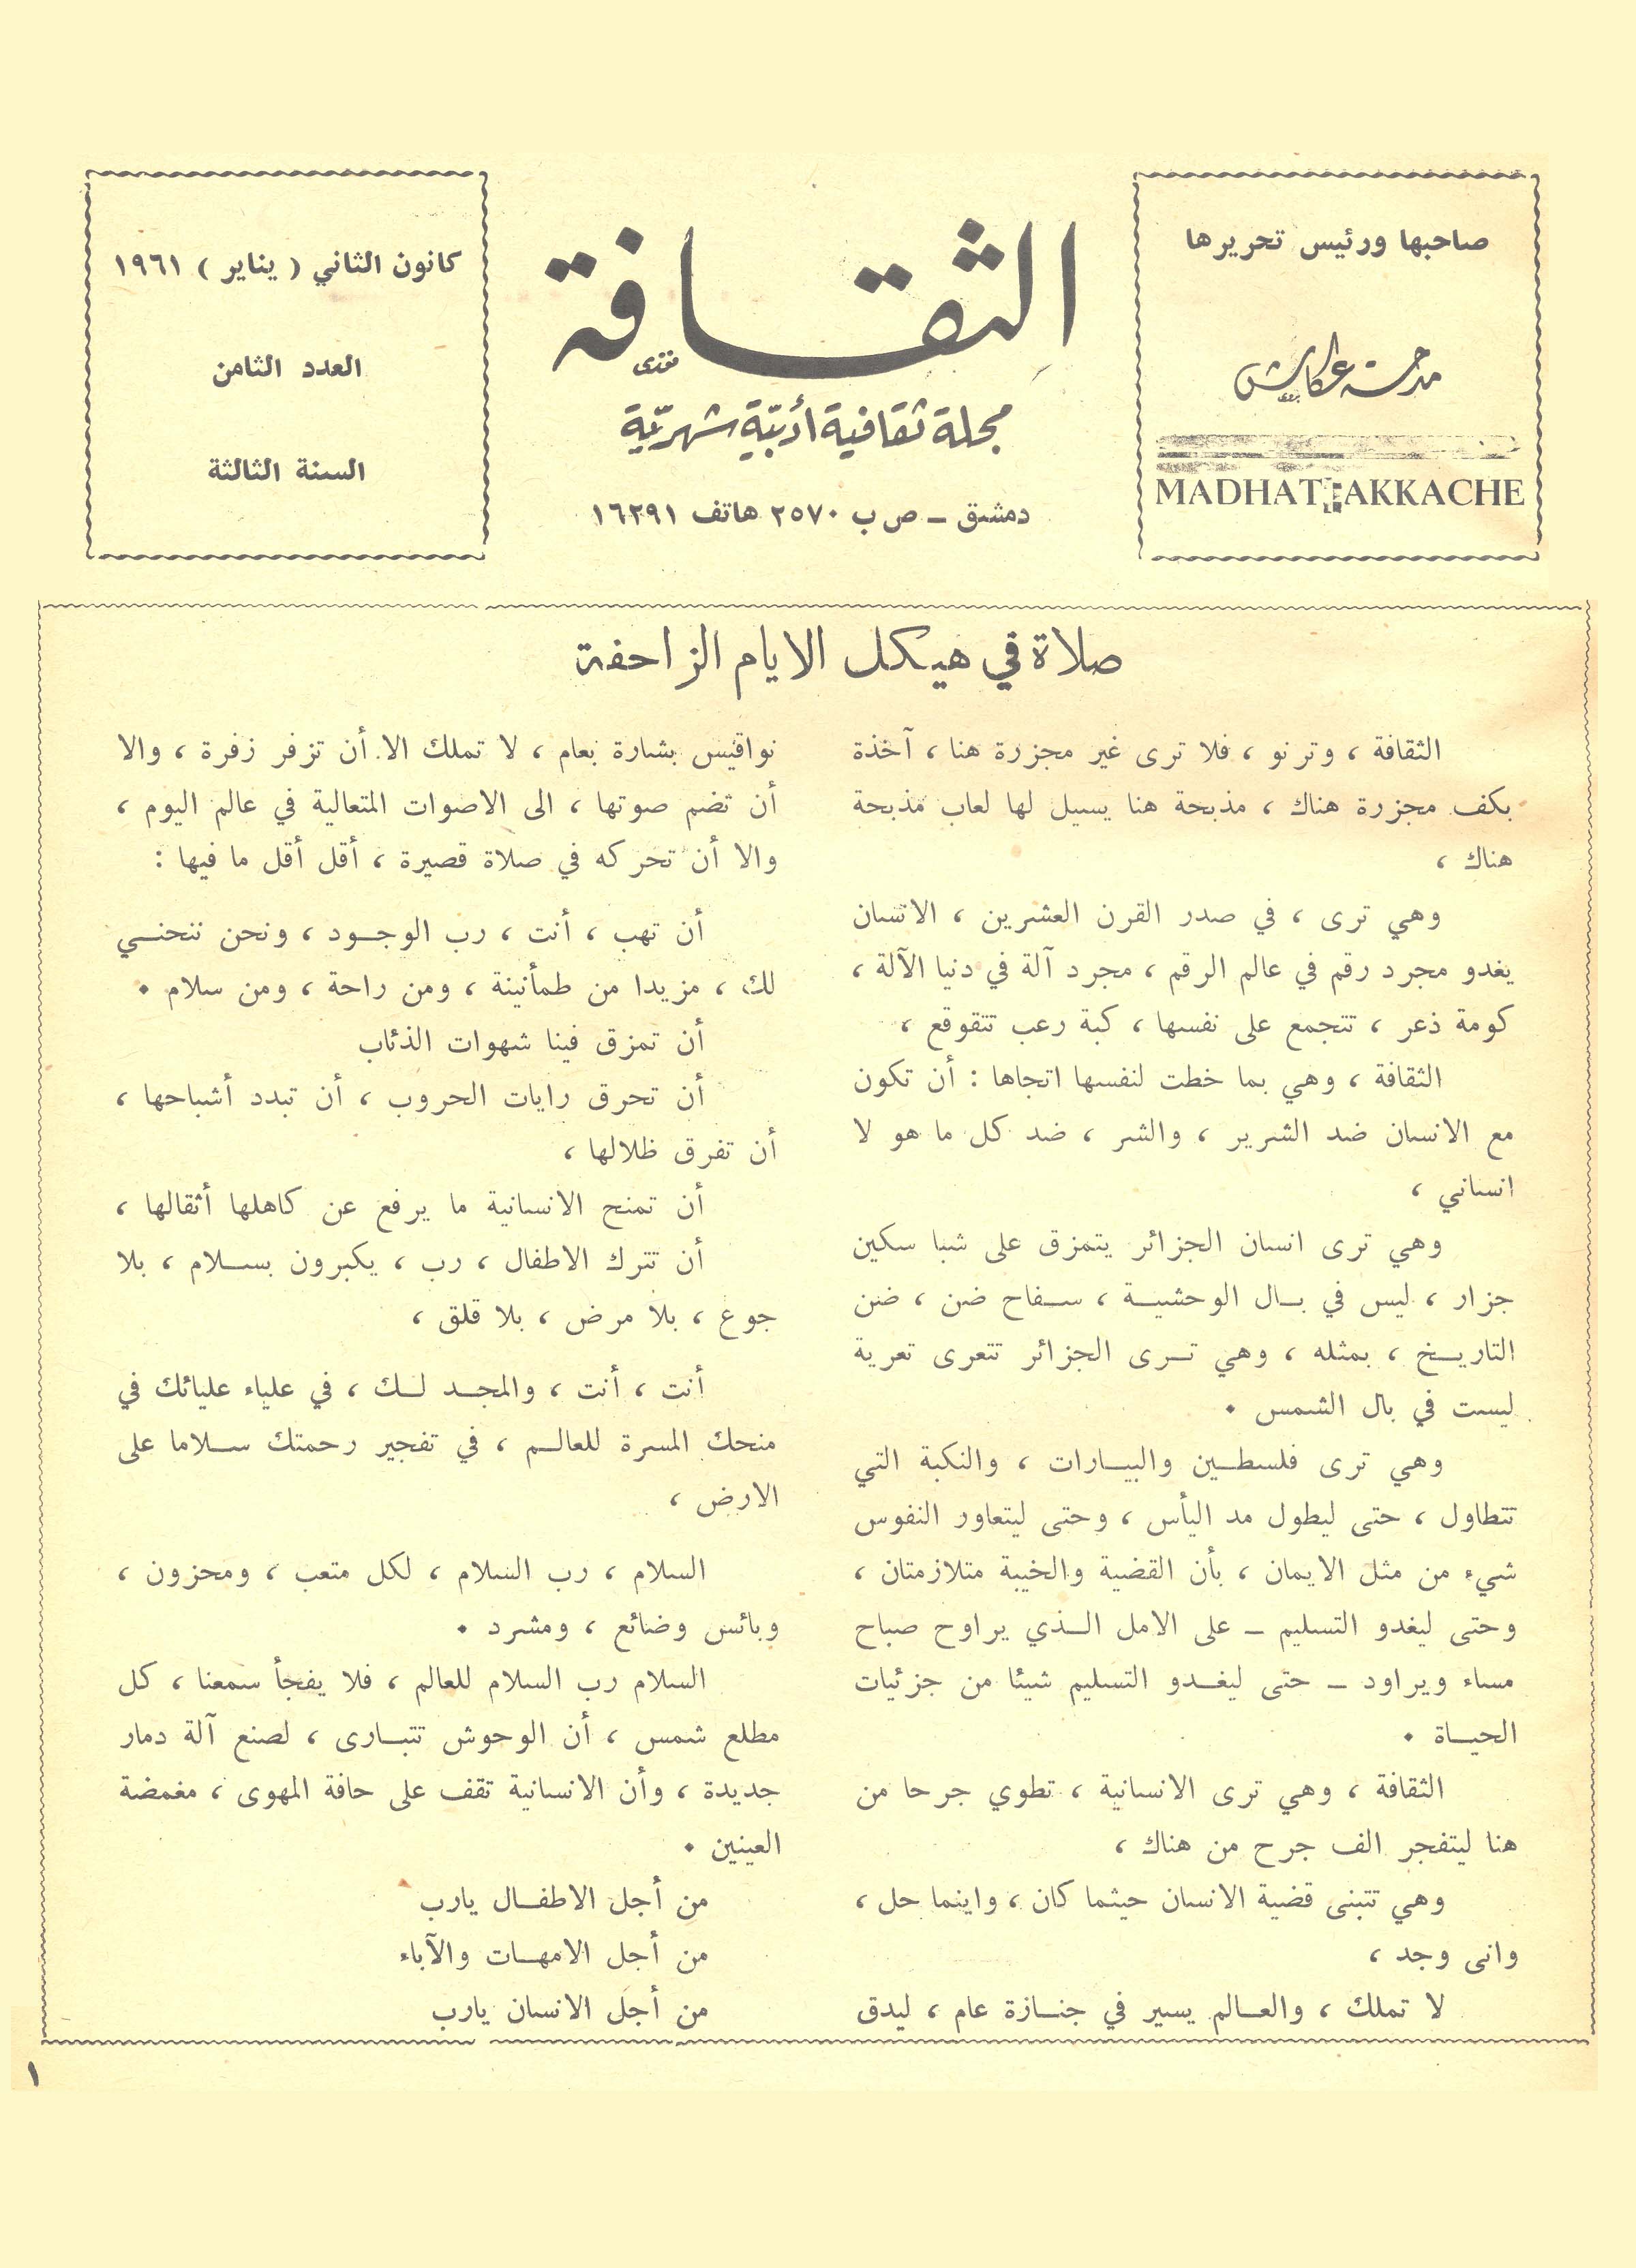 صاحبها ورئيس تحريرها
مدحت عكاش
MADHAT AKKACHE
الثقافة
مجلة ثقافية أدبية شهرية
دمشق – ص ب ٢٥٧٠ هاتف ١٦٢٩١
كانون الثاني ( يناير ) ١٩٦١
العدد الثامن
السنة الثالثة
صلاة في هيكل الايام الزاحفة
الثقافة ، وترنو ، فلا ترى غير مجزرة هنا ، آخذة
بكف مجزرة هناك ، مذبحة هنا يسيل لها لعاب مذبحة
هناك ،
وهي ترى ، في صدر القرن العشرين ، الانسان
يغدو مجرد رقم في عالم الرقم ، مجرد آلة في دنيا الآلة ،
كومة ذعر ، تتجمع على نفسها ، كبة رعب تتقوقع ،
الثقافة ، وهي بما خطت لنفسها اتجاها : أن تكون
مع الانسان ضد الشرير ، والشر ، ضد كل ما هو لا
انساني ،
وهي ترى انسان الجزائر يتمزق على شبا سكين
جزار ، ليس في بال الوحشية ، سفاح ضن ، ضن
التاريخ ، بمثله ، وهي ترى الجزائر تتعرى تعرية
ليست في بال الشمس .
وهي ترى فلسطين والبيارات ، والنكبة التي
تتطاول ، حتى ليطول مد اليأس ، وحتى ليتعاور النفوس
شيء من مثل الايمان ، بأن القضية والخيبة متلازمتان ،
وحتى ليغدو التسليم – على الامل الذي يراوح صباح
مساء ويراود – حتى ليغدو التسليم شيئا من جزئيات
الحياة .
الثقافة ، وهي ترى الانسانية ، تطوي جرحا من
هنا ليتفجر الف جرح من هناك ،
وهي تتبنى قضية الانسان حيثما كان ، واينما حل ،
وانى وجد ،
لا تملك ، والعالم يسير في جنازة عام ، ليدق
نواقيس بشارة بعام ، لا تملك الا أن تزفر زفرة ، والا
أن تضم صوتها ، الى الاصوات المتعالية في عالم اليوم ،
والا أن تحركه في صلاة قصيرة ، أقل أقل ما فيها :
أن تهب ، أنت ، رب الوجود ، ونحن ننحني
لك ، مزيدا من طمأنينة ، ومن راحة ، ومن سلام .
أن تمزق فينا شهوات الذئاب
أن تحرق رايات الحروب ، أن تبدد أشباحها ،
أن تفرق ظلالها ،
أن تمنح الانسانية ما يرفع عن كاهلها أثقالها ،
أن تترك الاطفال ، رب ، يكبرون بسلام ، بلا
جوع ، بلا مرض ، بلا قلق ،
أنت ، أنت ، والمجد لك ، في علياء عليائك في
منحك المسرة للعالم ، في تفجير رحمتك سلاما على
الارض ،
السلام ، رب السلام ، لكل متعب ، ومحزون ،
وبائس وضائع ، ومشرد .
السلام رب السلام للعالم ، فلا يفجأ سمعنا ، كل
مطلع شمس ، أن الوحوش تتبارى ، لصنع آلة دمار
جديدة ، وأن الانسانية تقف على حافة المهوى ، مغمضة
العينين .
من أجل الاطفال يارب
من أجل الامهات والآباء
من أجل الانسان يارب
١